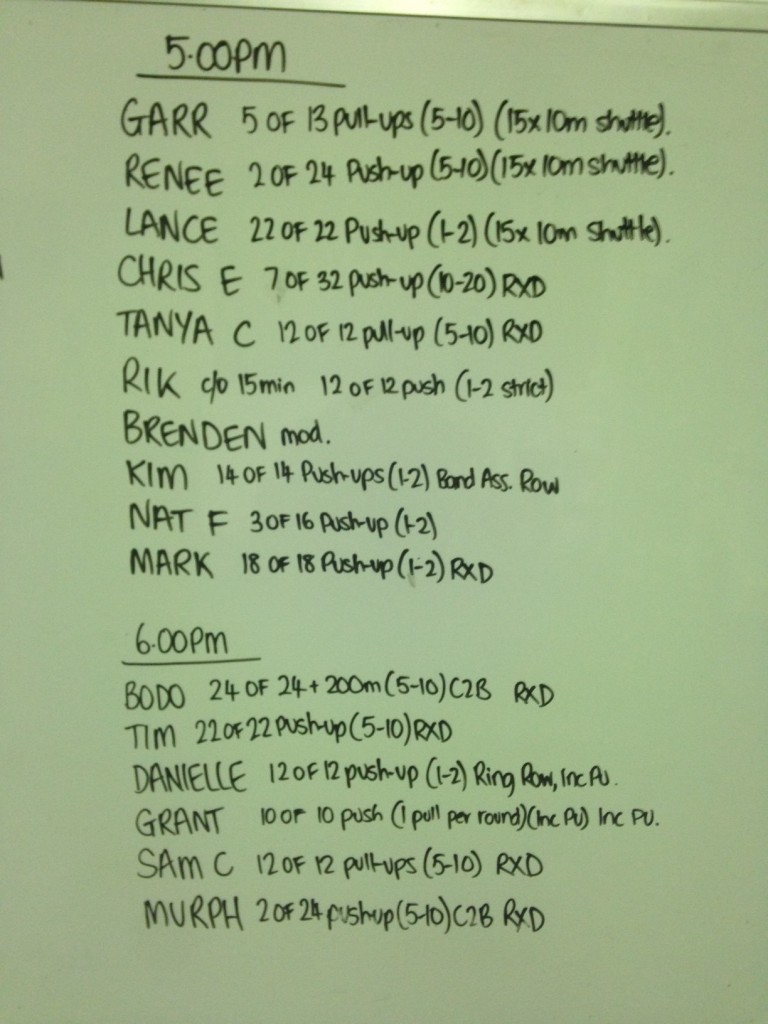 5.00PM
GARR 5 OF 13 pull-ups (5-10) (15x 10m shuttle).
RENEE 2 OF 24 Push-up (5-10) (15x 10m shuttle).
LANCE 22 OF 22 Push-up (1-2) (15x 10m shuttle).
CHRIS E 7 OF 32 push-up (10-20) RXD
TANYA C 12 OF 12 pull-up (5-10) RXD
RIK c/o 15min 12 OF 12 push (1-2 strict)
BRENDEN mod.
KIM 14 OF 14 Push-ups (1-2) Band Ass. Row
NAT F 3 OF 16 Push-up (1-2)
MARK 18 OF 18 Push-up (1-2) RXD
6.00PM
BODO 24 OF 24 + 200m (5-10) C2B RXD
TIM 22 OF 22 push-up (5-10) RXD
DANIELLE 12 OF 12 push-up (1-2) Ring Row, Inc Pu.
GRANT 10 OF 10 push (1 pull per round) (Inc PU) Inc PU.
SAM C 12 OF 12 pull-ups (5-10) RXD
MURPH 2 OF 24 push-up (5-10) C2B RXD